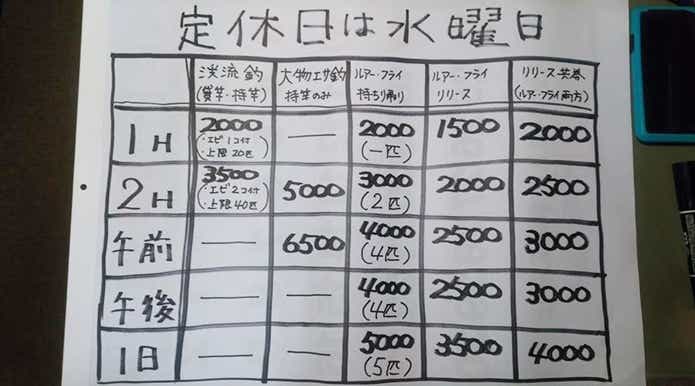 定休日は水曜日
渓流釣 (貸竿・持竿)
大物エサ釣 持竿のみ
ルアー・フライ 持ち帰り
ルアー・フライ リリース
リリース共春 (ルアー・フライ両方)
1H
2000 (・エビ1コ付 ・上限20匹)
—
2000 (一匹)
1500
2000
2H
3500 (・エビ2コ付 ・上限40匹)
5000
3000 (2匹)
2000
2500
午前
—
6500
4000 (4匹)
2500
3000
午後
—
—
4000 (4匹)
2500
3000
1日
—
—
5000 (5匹)
3500
4000